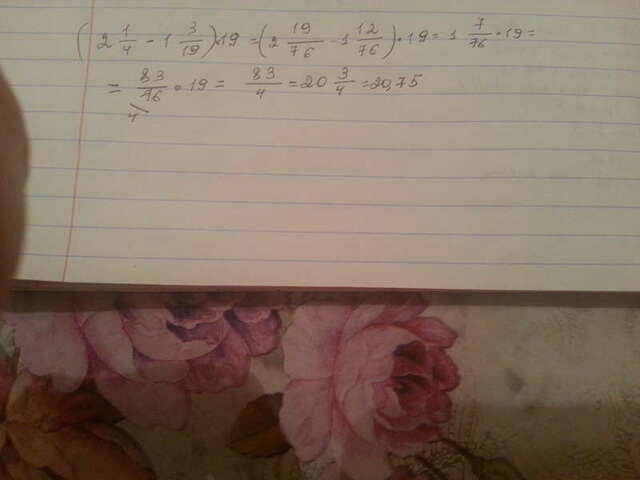 ( 2 1/4 - 1 3/19 ) · 19 = ( 2 19/76 - 1 12/76 ) · 19 = 1 7/76 · 19 =
= 83/76 · 19 = 83/4 = 20 3/4 = 20,75
4